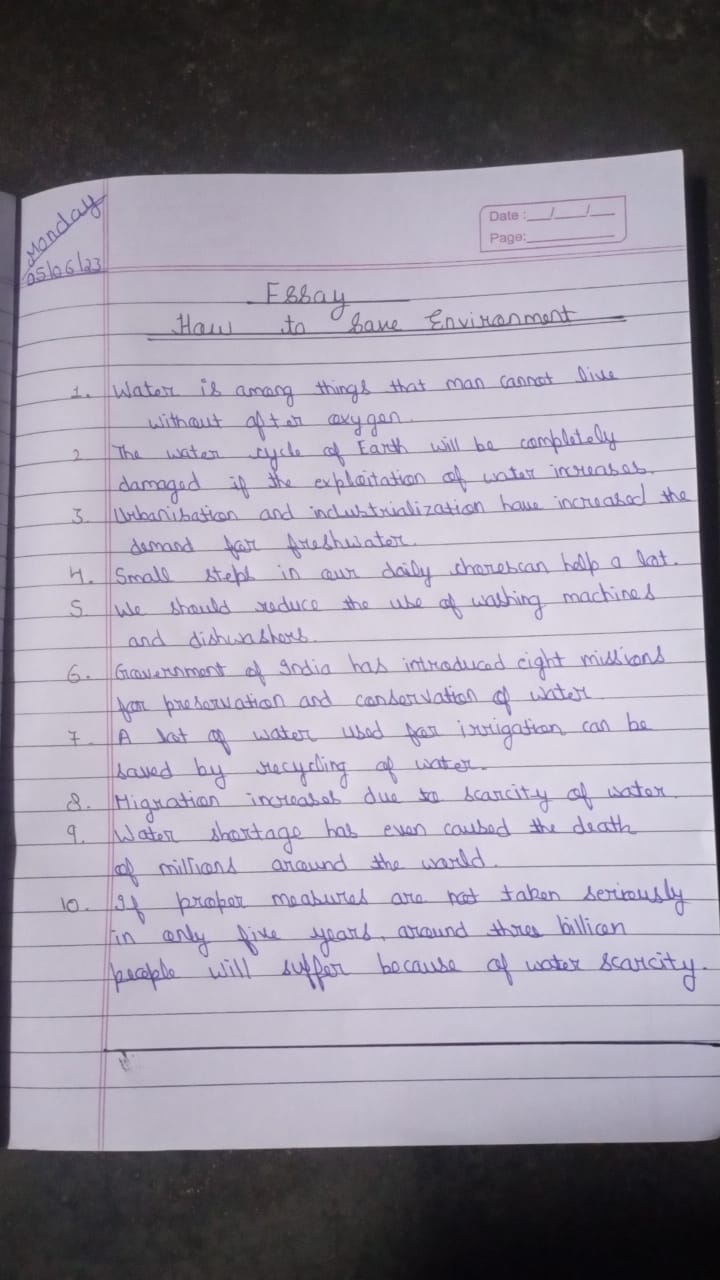 Monday
05/06/23
Date : __/__/__
Page: ______
Essay
How to Save Environment
1. Water is among things that man cannot live
without after oxygen.
2. The water cycle of Earth will be completely
damaged if the exploitation of water increases.
3. Urbanisation and industrialization have increased the
demand for freshwater.
4. Small steps in our daily chorescan help a lot.
5. We should reduce the use of washing machines
and dishwashers.
6. Government of India has introduced eight missions
for preservation and conservation of water.
7. A lot of water used for irrigation can be
saved by recycling of water.
8. Migration increases due to scarcity of water.
9. Water shortage has even caused the death
of millions around the world.
10. If proper measures are not taken seriously
in only five years, around three billion
people will suffer because of water scarcity.